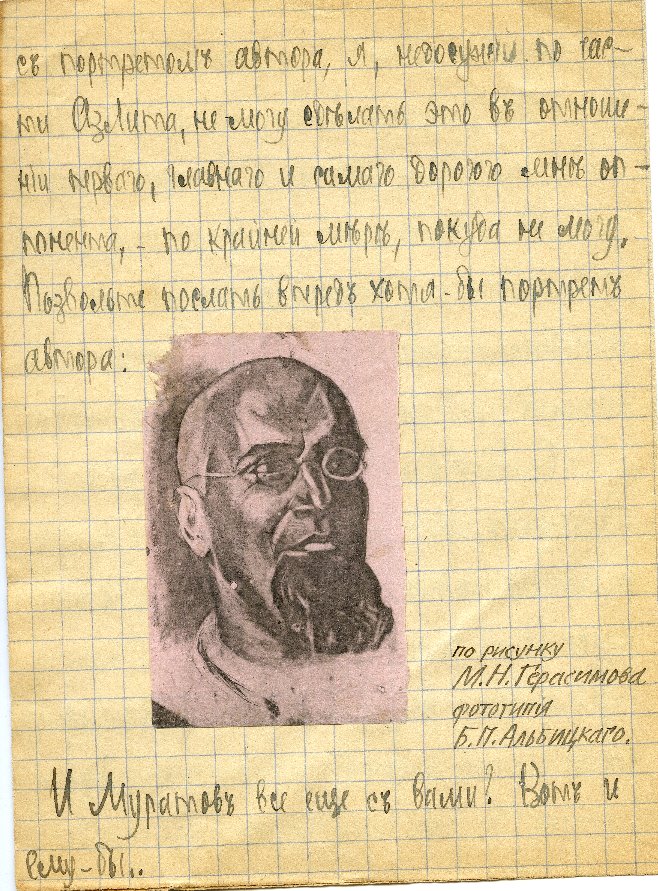 съ портретомъ автора, я, недосужий по час-
ти Азлита, не могу сдѣлать это въ отноше-
нiи перваго, главнаго и самаго дорогого мнѣ оп-
понента, - по крайней мѣрѣ, покуда не могу.
Позвольте послать впредъ хотя-бы портретъ
автора:
по рисунку
М.Н. Герасимова
фототипи
Б.П. Альбицкаго.
И Муратовъ все еще съ вами? Вотъ и
ему-бы..